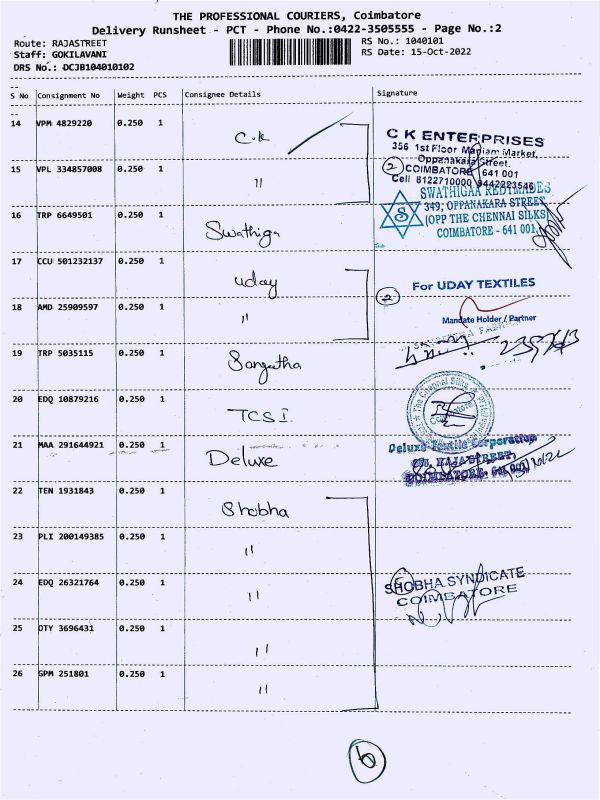 THE PROFESSIONAL COURIERS, Coimbatore
Delivery Runsheet - PCT - Phone No.:0422-3505555 - Page No.:2
Route: RAJASTREET
RS No.: 1040101
Staff: GOKILAVANI
RS Date: 15-Oct-2022
DRS No.: DCJB104010102
S No Consignment No Weight PCS Consignee Details Signature
14 VPM 4829220 0.250 1 C.K
C K ENTERPRISES
356 1st Floor Maniam Market,
Oppanakara Street.
COIMBATORE 641 001
Cell 8122710000 9442223546
15 VPL 334857008 0.250 1 "
2
16 TRP 6649501 0.250 1 Swathiga
SWATHIGAA REDYMADES
349, OPPANAKARA STREET
(OPP THE CHENNAI SILKS)
COIMBATORE - 641 001
S
17 CCU 501232137 0.250 1 uday
For UDAY TEXTILES
2
18 AMD 25909597 0.250 1 "
Mandate Holder / Partner
19 TRP 5035115 0.250 1 Sangeetha
20 EDQ 10879216 0.250 1 TCSI
The Chennai Silks
Coimbatore
21 MAA 291644921 0.250 1 Deluxe
Deluxe Textile Corporation
RAJA STREET,
COIMBATORE. 641 001
22 TEN 1931843 0.250 1 Shobha
23 PLI 200149385 0.250 1 "
24 EDQ 26321764 0.250 1 "
SHOBHA SYNDICATE
COIMBATORE
25 OTY 3696431 0.250 1 "
26 GPM 251801 0.250 1 "